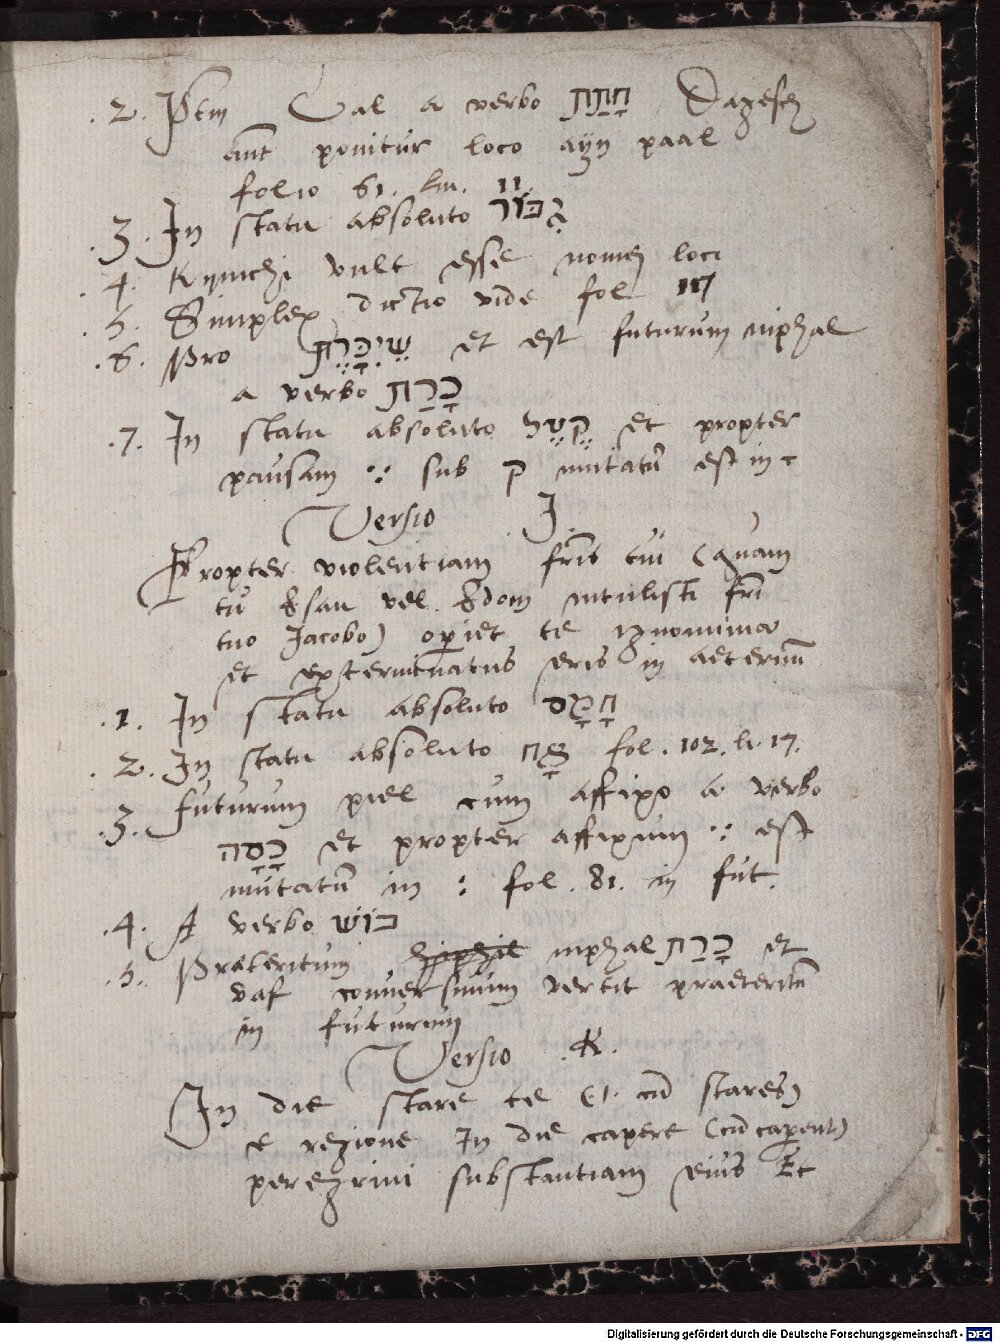 .2. Prtm Cal a verbo חָתַת Dagesch
aut ponitur loco ayn paal
folio 61. lin. 11.
.3. In statu absoluto גִּבּוֹר
.4. Kymchi vult esse nomen loci
.5. Simplex dictio vide fol 117
.6. Pro שֶׁיִּכָּרֶת et est futurum niphal
a verbo כָּרַת
.7. In statu absoluto קֶטֶל et propter
pausam ∵ sub ק mutatum est in ־
Versio J
Propter violentiam fris tui (quam
tu Esau vel Edom intulisti fri
tuo Jacobo) operiet te ignominia
et exterminatus eris in aeternum
.1. In statu absoluto חָמָס
.2. In statu absoluto אָח fol. 102. li. 17.
.3. futurum piel cum affixo a verbo
כָּסָה et propter affixum ∵ est
mutatum in : fol. 81. in fut.
.4. A verbo בוֹשׁ
.5. Praeteritum hiphil niphal כָּרַת et
vaf conversivum vertit praeteritum
in futurum
Versio .K.
In die stare te (i. cum stares)
e regione In die capere (cum caperent)
peregrini substantiam eius Et